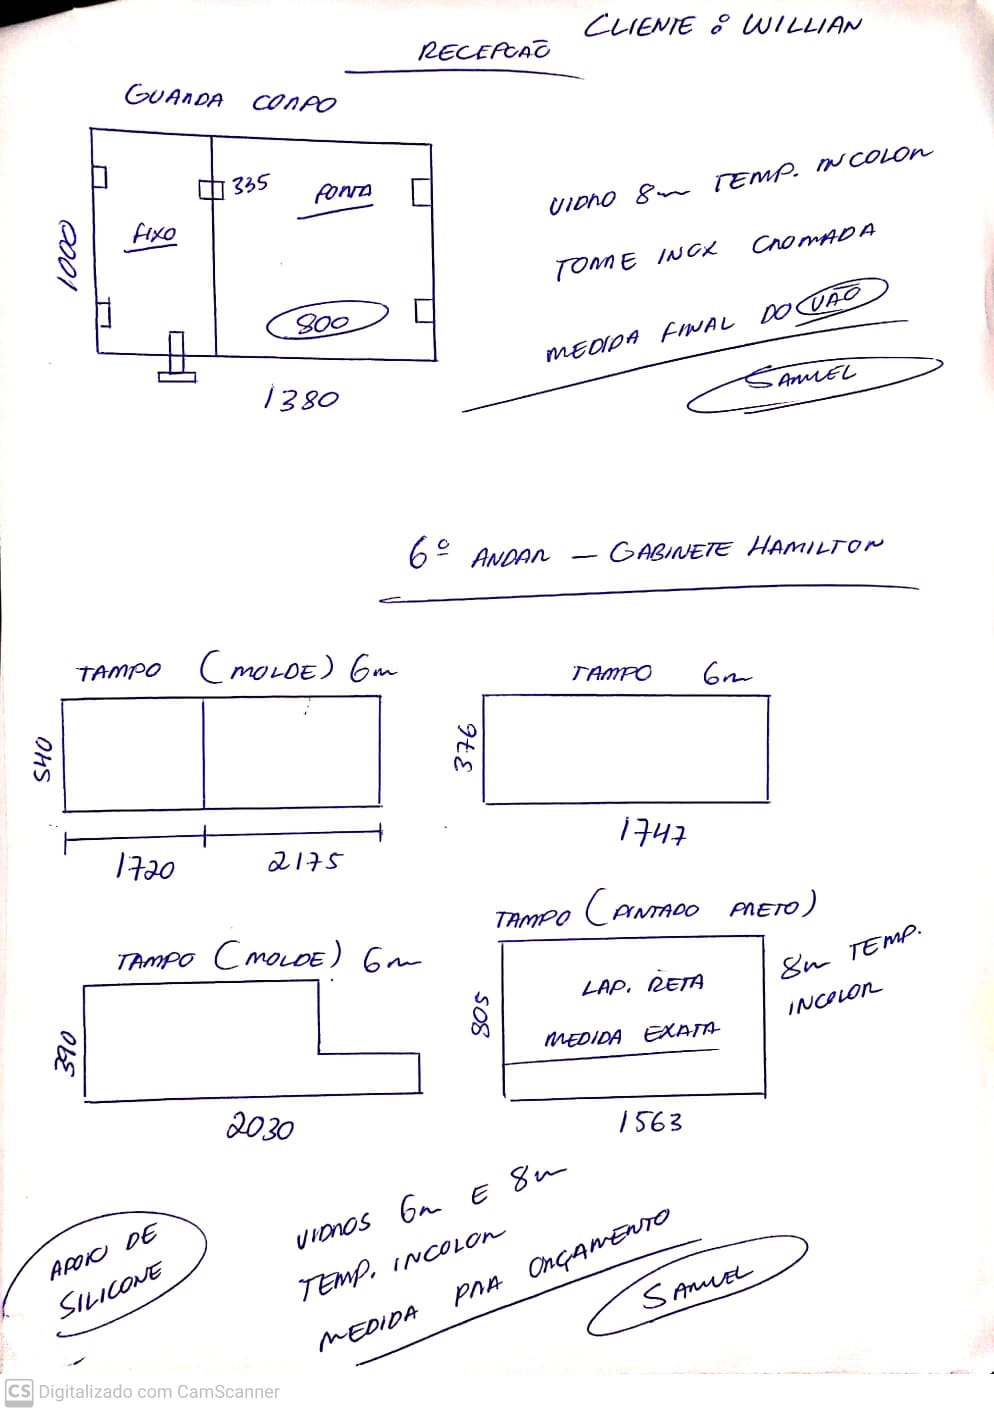 CLIENTE : WILLIAN
RECEPCAÕ
GUARDA CORPO
335
PORTA
FIXO
1000
800
1380
VIDRO 8m TEMP. INCOLOR
TORRE INOX CROMADA
MEDIDA FINAL DO VÃO
SAMUEL
6º ANDAR - GABINETE HAMILTON
TAMPO (MOLDE) 6m
540
1720
2175
TAMPO 6m
376
1747
TAMPO (MOLDE) 6m
390
2030
TAMPO (PINTADO PRETO)
LAP. RETA
MEDIDA EXATA
805
1563
8m TEMP.
INCOLOR
APOIO DE
SILICONE
VIDROS 6m E 8m
TEMP. INCOLOR
MEDIDA PRA ORÇAMENTO
SAMUEL
CS Digitalizado com CamScanner